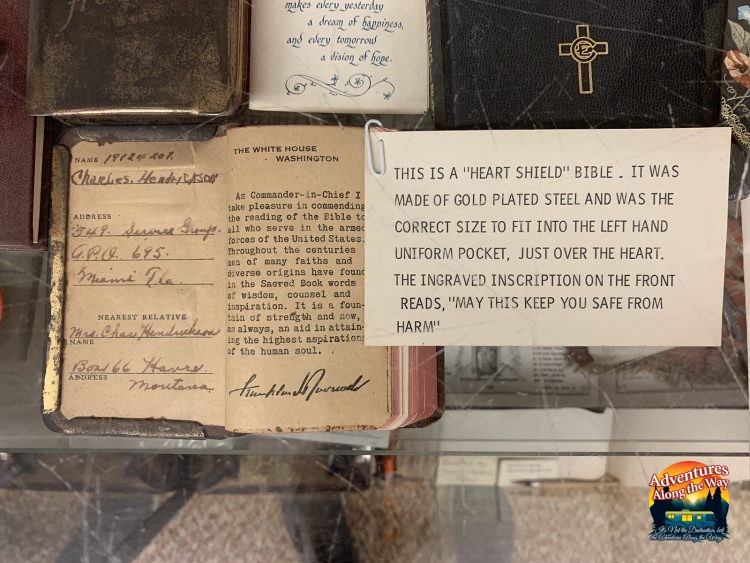 makes every yesterday
a dream of happiness,
and every tomorrow
a vision of hope.
NAME 1912*207.
Charles. Hendrickson
ADDRESS
549. Service Group.
A.P.O. 695.
Miami Fla.
NEAREST RELATIVE
Mrs. Chas Hendrickson
NAME
Box 66 Havre.
ADDRESS
Montana
THE WHITE HOUSE
WASHINGTON
As Commander-in-Chief I
take pleasure in commending
the reading of the Bible to
all who serve in the armed
forces of the United States.
Throughout the centuries
men of many faiths and
diverse origins have found
in the Sacred Book words
of wisdom, counsel and
inspiration. It is a foun-
tain of strength and now,
as always, an aid in attain-
ing the highest aspirations
of the human soul.
Franklin D Roosevelt
THIS IS A "HEART SHIELD" BIBLE. IT WAS
MADE OF GOLD PLATED STEEL AND WAS THE
CORRECT SIZE TO FIT INTO THE LEFT HAND
UNIFORM POCKET, JUST OVER THE HEART.
THE INGRAVED INSCRIPTION ON THE FRONT
READS, "MAY THIS KEEP YOU SAFE FROM
HARM"
Adventures
Along the Way
It's Not the Destination, but
the Adventures Along the Way